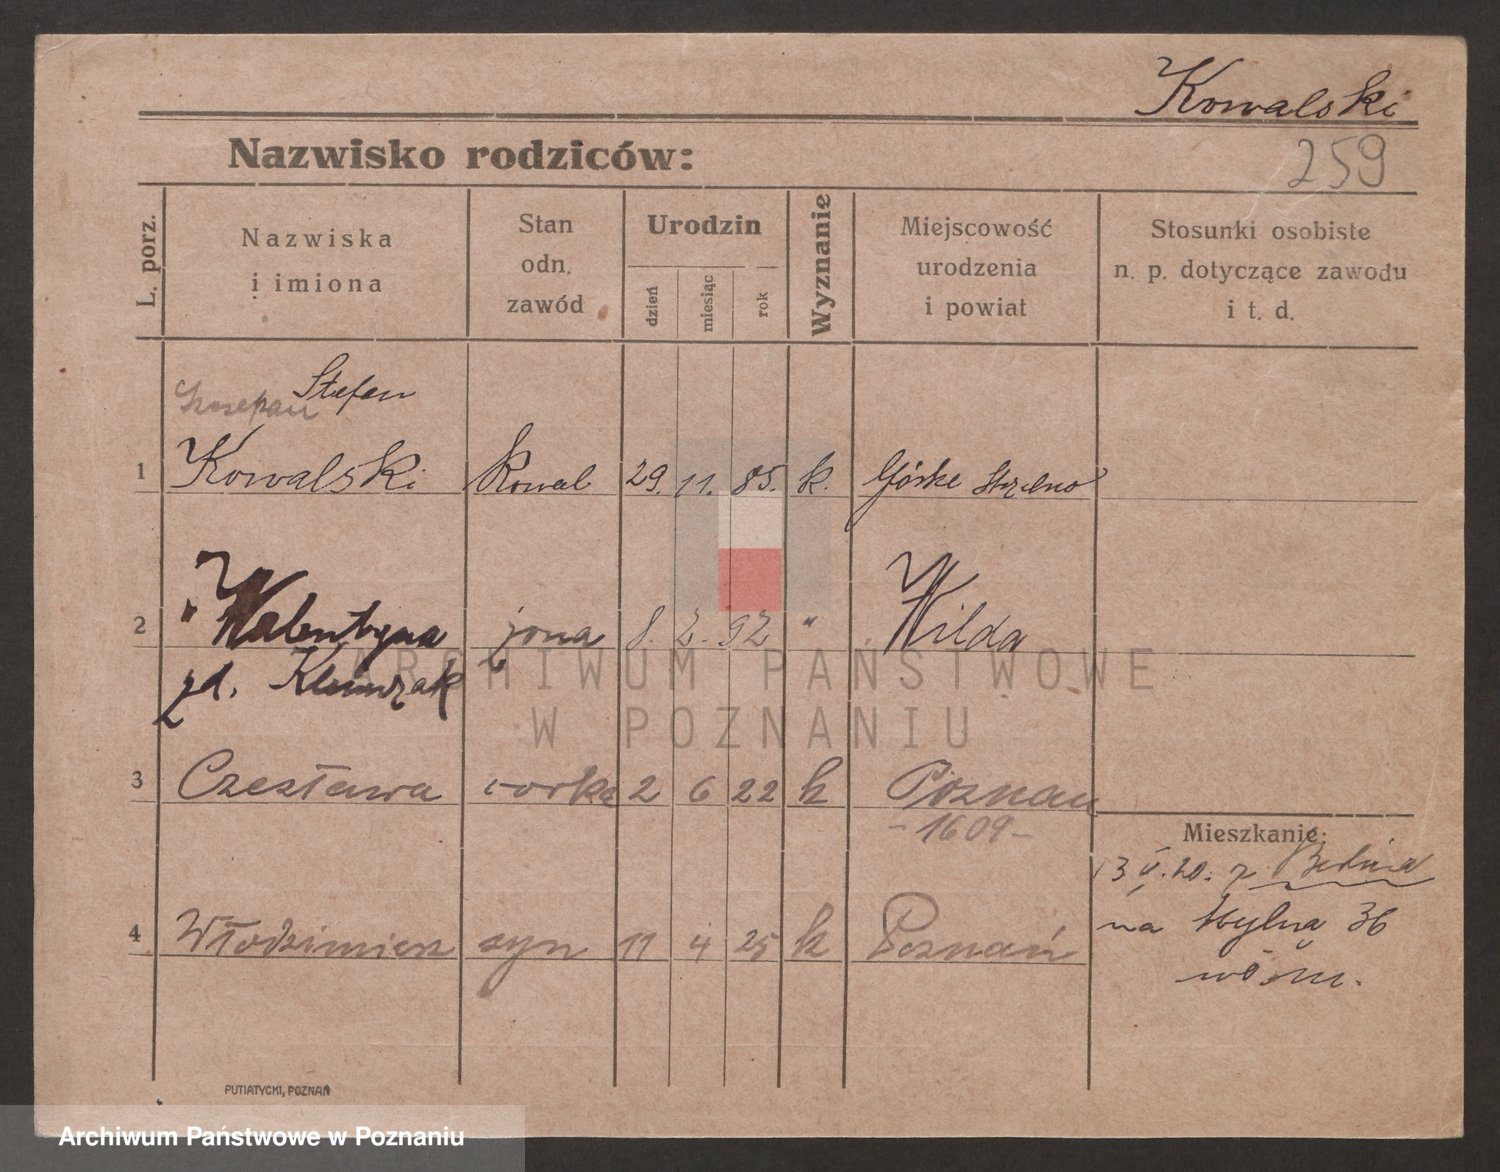 Kowalski
259
Nazwisko rodziców:
L. porz.
Nazwiska
i imiona
Stan
odn.
zawód
Urodzin
dzień
miesiąc
rok
Wyznanie
Miejscowość
urodzenia
i powiat
Stosunki osobiste
n. p. dotyczące zawodu
i t. d.
Szczepan Stefan
1 Kowalski Kowal 29. 11. 85. k. Górke Strzelno
2 " Walentyna żona 8. 2. 92 " Wilda
zd.
ARCHIWUM PAŃSTWOWE
W POZNANIU
3 Czesława corka 2 6 22 k Poznan
-1609-
Mieszkanie:
13 V. 20. z Berlina
na 36
4 Włodzimierz syn 11 4 25 k Poznań
PUTIATYCKI, POZNAŃ
Archiwum Państwowe w Poznaniu